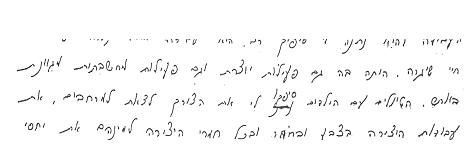 והיא נתנה לי סיפוק רב. היא
חיי שיגרה. הותה בה גם פעילות יוצרת וגם פעילות מחשבתית מגוונת
הטיולים עם הילדים סיפקו לי את הצורך לצאת למרחבים. את
עבודות היצירה בצבע ובחומר ובכל חמרי היצירה למיניהם את יחסי